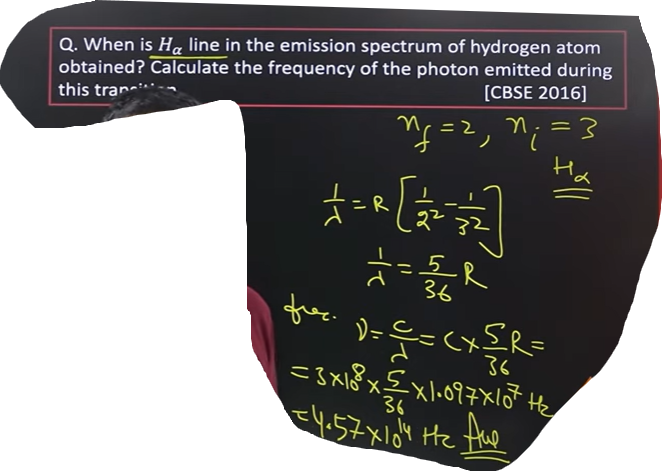 Q. When is Hα line in the emission spectrum of hydrogen atom
obtained? Calculate the frequency of the photon emitted during
this transition [CBSE 2016]
n_f = 2, n_i = 3
Hα
1/λ = R [1/2² - 1/3²]
1/λ = 5/36 R
frec. ν = c/λ = c × 5/36 R =
= 3×10⁸ × 5/36 × 1.097×10⁷ Hz
= 4.57×10¹⁴ Hz Ans